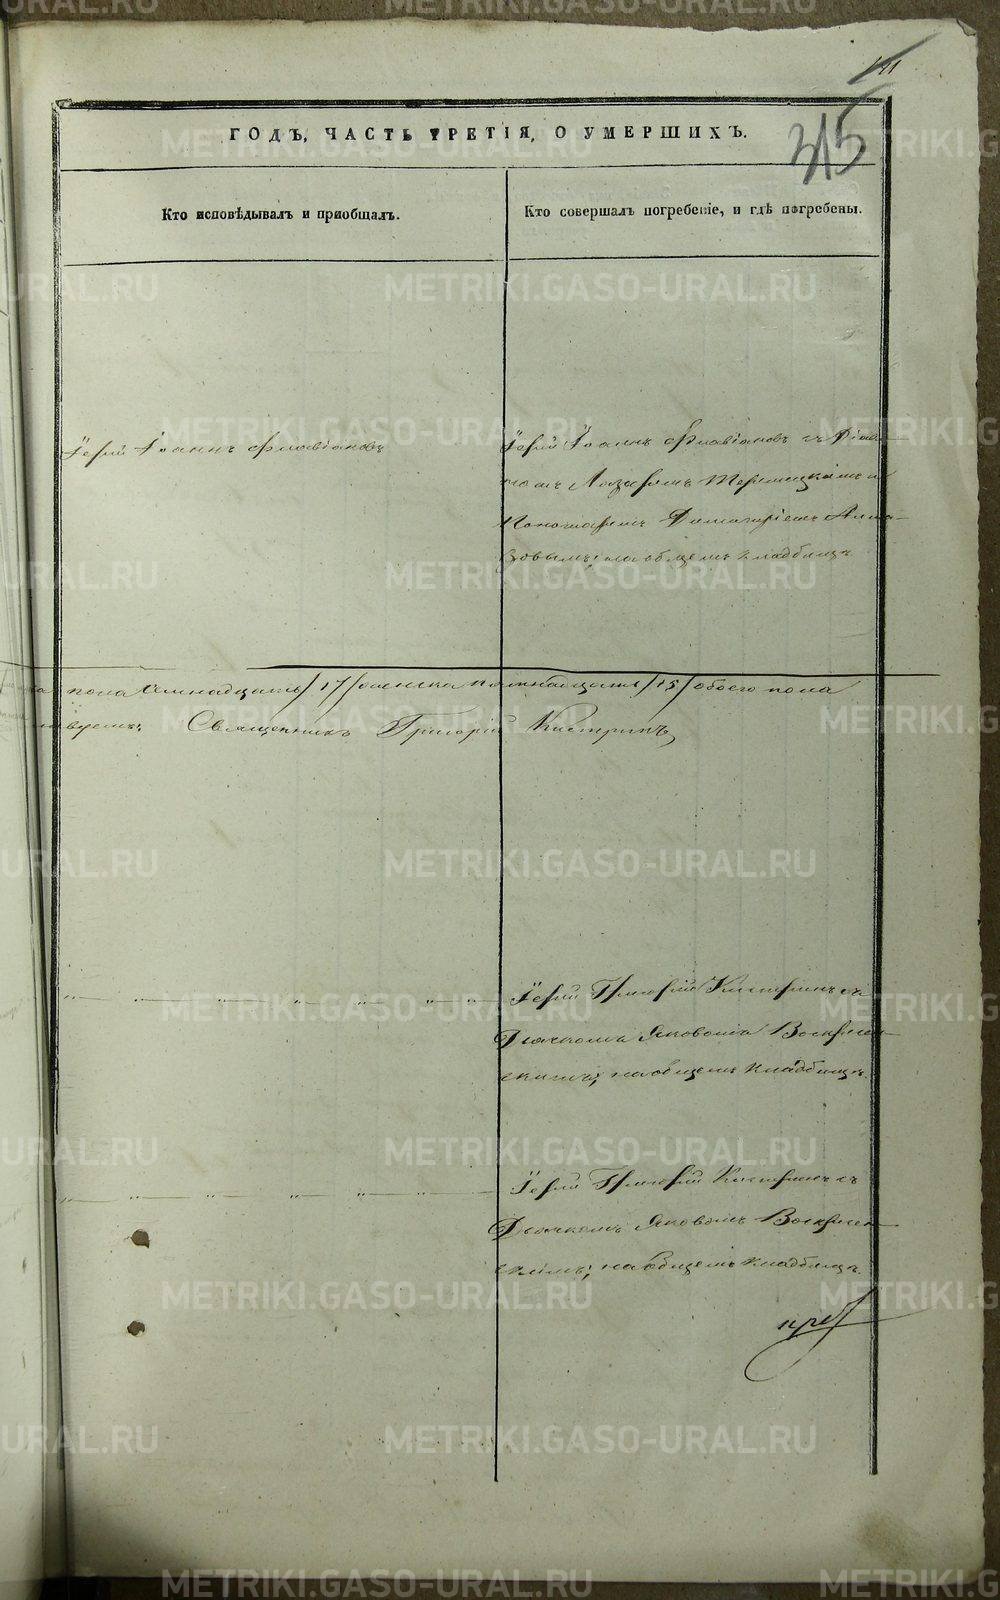 315
ГОДЪ, ЧАСТЬ ТРЕТІЯ, О УМЕРШИХЪ.
Кто исповѣдывалъ и пріобщалъ.
Кто совершалъ погребеніе, и гдѣ погребены.
Іерей Іоаннъ Флавіановъ
Іерей Іоаннъ Флавіановъ съ Діако-
номъ Лазаремъ
Пономаремъ Димитріемъ Алма-
зовымъ; на общемъ кладбищѣ
пола семнадцать /17/ женска пятнадцать /15/ обоего пола
Священникъ Григорій Кистринъ
Іерей Григорій Кистринъ съ
Дьячкомъ Яковомъ Воскресен-
скимъ; на общемъ кладбищѣ.
Іерей Григорій Кистринъ съ
Дьячкомъ Яковомъ Воскресен-
скимъ; на общемъ кладбищѣ.
METRIKI.GASO-URAL.RU